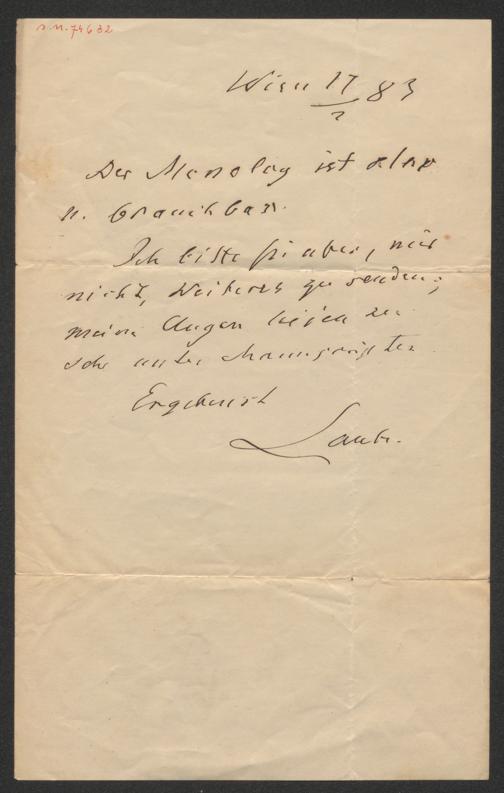 I.N. 74632
Wien 17/2 83
Der Monolog ist klar
u. brauchbar.
Ich bitte Sie aber, mir
nicht Weiteres zu senden;
meine Augen liegen zu
sehr unter Manuscripten
Ergebenst
Laube.